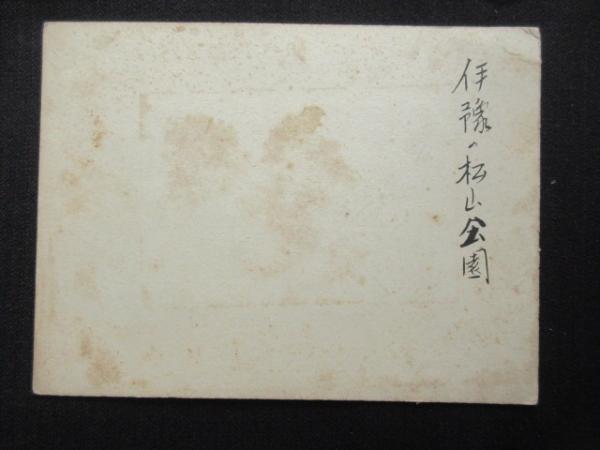 伊豫の松山公園